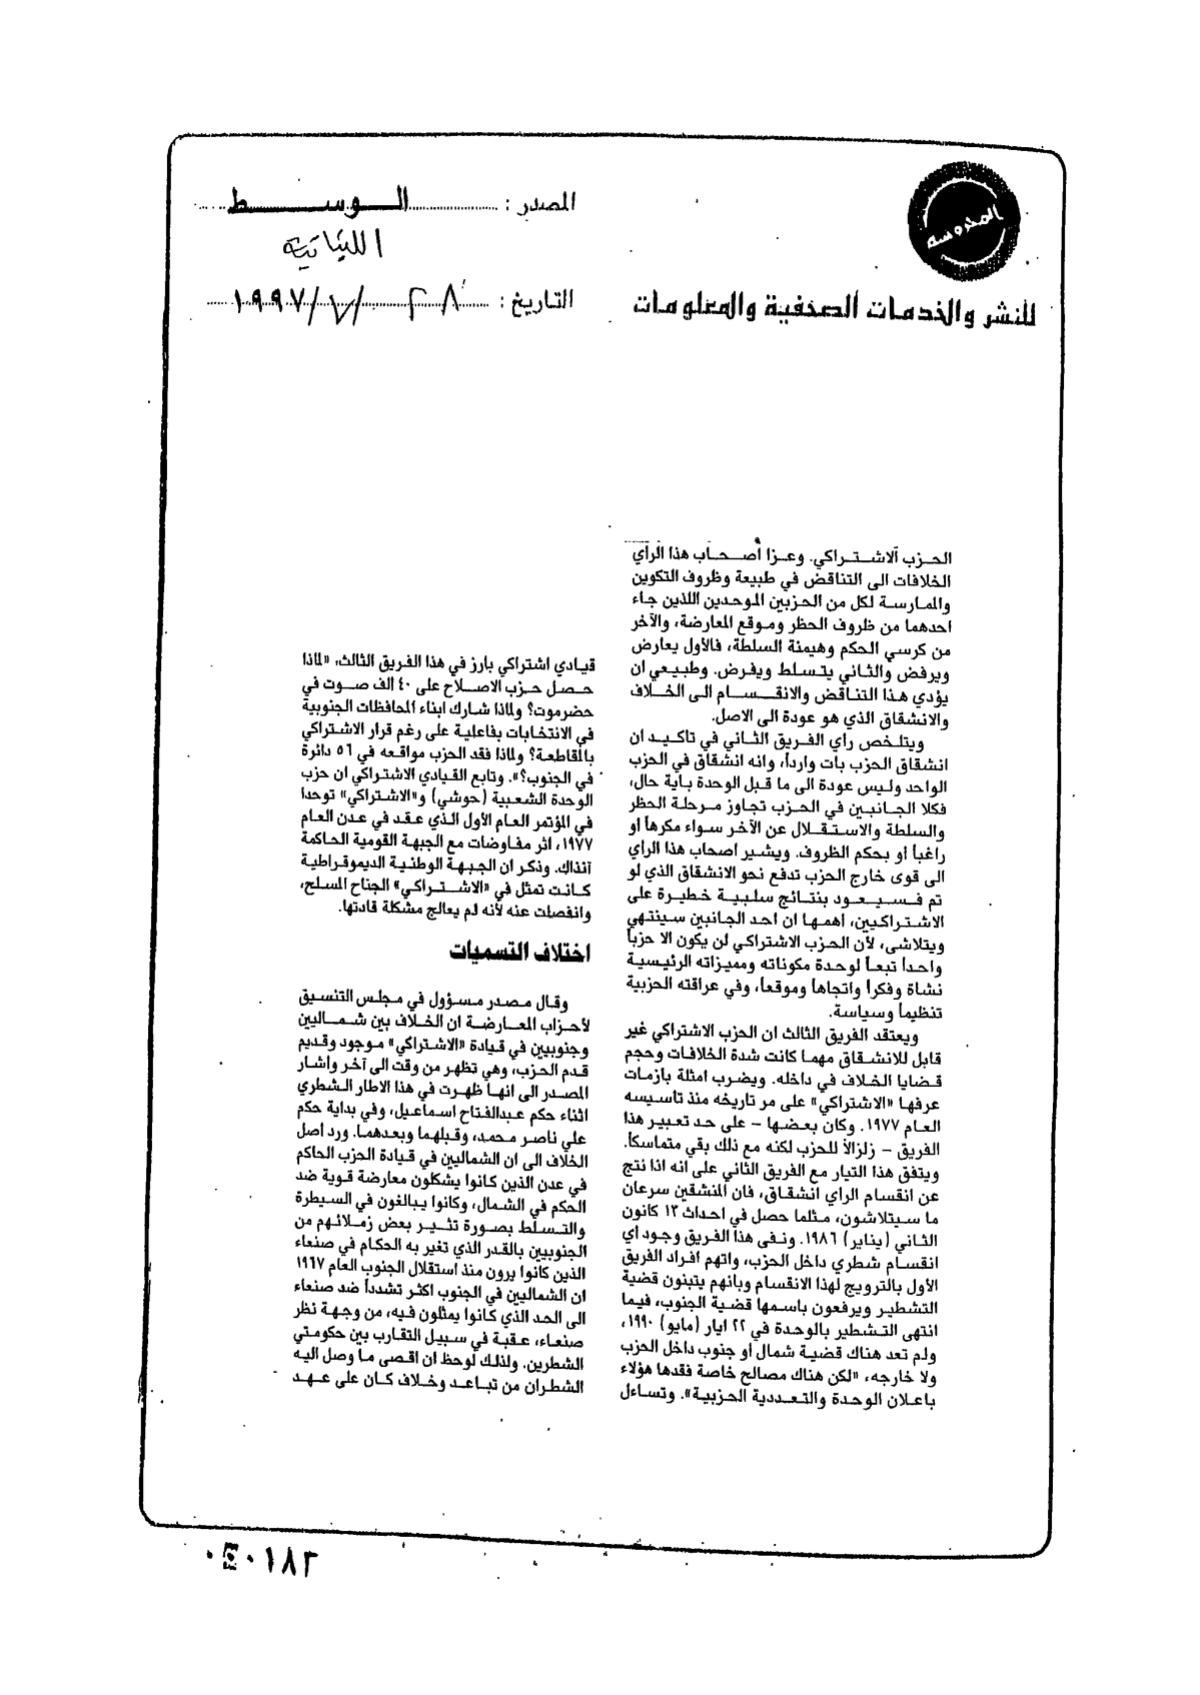 المحروسة
للنشر والخدمات الصحفية والمعلومات
المصدر : الوسط
اللبنانية
التاريخ : ٢٨ / ٧ / ١٩٩٧
الحزب الاشتراكي. وعزا أصحاب هذا الرأي
الخلافات الى التناقض في طبيعة وظروف التكوين
والممارسة لكل من الحزبين الموحدين اللذين جاء
احدهما من ظروف الحظر وموقع المعارضة، والآخر
من كرسي الحكم وهيمنة السلطة، فالأول يعارض
ويرفض والثاني يتسلط ويفرض. وطبيعي ان
يؤدي هذا التناقض والانقسام الى الخلاف
والانشقاق الذي هو عودة الى الاصل.
ويتلخص رأي الفريق الثاني في تاكيد ان
انشقاق الحزب بات وارداً، وانه انشقاق في الحزب
الواحد وليس عودة الى ما قبل الوحدة باية حال،
فكلا الجانبين في الحزب تجاوز مرحلة الحظر
والسلطة والاستقلال عن الآخر سواء مكرهاً أو
راغباً أو بحكم الظروف. ويشير اصحاب هذا الرأي
الى قوى خارج الحزب تدفع نحو الانشقاق الذي لو
تم فسيعود بنتائج سلبية خطيرة على
الاشتراكيين، اهمها ان احد الجانبين سينتهي
ويتلاشى، لأن الحزب الاشتراكي لن يكون الا حزباً
واحداً تبعاً لوحدة مكوناته ومميزاته الرئيسية
نشاة وفكراً واتجاهاً وموقعاً، وفي عراقته الحزبية
تنظيماً وسياسة.
ويعتقد الفريق الثالث ان الحزب الاشتراكي غير
قابل للانشقاق مهما كانت شدة الخلافات وحجم
قضايا الخلاف في داخله. ويضرب امثلة بازمات
عرفها «الاشتراكي» على مر تاريخه منذ تاسيسه
العام ١٩٧٧. وكان بعضها - على حد تعبير هذا
الفريق - زلزالاً للحزب لكنه مع ذلك بقي متماسكاً.
ويتفق هذا التيار مع الفريق الثاني على انه اذا نتج
عن انقسام الراي انشقاق، فان المنشقين سرعان
ما سيتلاشون، مثلما حصل في احداث ١٣ كانون
الثاني (يناير) ١٩٨٦. ونفى هذا الفريق وجود اي
انقسام شطري داخل الحزب، واتهم افراد الفريق
الأول بالترويج لهذا الانقسام وبانهم يتبنون قضية
التشطير ويرفعون باسمها قضية الجنوب، فيما
انتهى التشطير بالوحدة في ٢٢ ايار (مايو) ١٩٩٠،
ولم تعد هناك قضية شمال أو جنوب داخل الحزب
ولا خارجه، «لكن هناك مصالح خاصة فقدها هؤلاء
باعلان الوحدة والتعددية الحزبية». وتساءل
قيادي اشتراكي بارز في هذا الفريق الثالث، «لماذا
حصل حزب الاصلاح على ٤٠ الف صوت في
حضرموت؟ ولماذا شارك ابناء المحافظات الجنوبية
في الانتخابات بفاعلية على رغم قرار الاشتراكي
بالمقاطعة؟ ولماذا فقد الحزب مواقعه في ٥٦ دائرة
في الجنوب؟». وتابع القيادي الاشتراكي ان حزب
الوحدة الشعبية (حوشي) و«الاشتراكي» توحدا
في المؤتمر العام الأول الذي عقد في عدن العام
١٩٧٧، اثر مفاوضات مع الجبهة القومية الحاكمة
آنذاك. وذكر ان الجبهة الوطنية الديموقراطية
كانت تمثل في «الاشتراكي» الجناح المسلح،
وانفصلت عنه لأنه لم يعالج مشكلة قادتها.
اختلاف التسميات
وقال مصدر مسؤول في مجلس التنسيق
لأحزاب المعارضة ان الخلاف بين شماليين
وجنوبيين في قيادة «الاشتراكي» موجود وقديم
قدم الحزب، وهي تظهر من وقت الى آخر واشار
المصدر الى انها ظهرت في هذا الاطار الشطري
اثناء حكم عبدالفتاح اسماعيل، وفي بداية حكم
علي ناصر محمد، وقبلهما وبعدهما. ورد اصل
الخلاف الى ان الشماليين في قيادة الحزب الحاكم
في عدن الذين كانوا يشكلون معارضة قوية ضد
الحكم في الشمال، وكانوا يبالغون في السيطرة
والتسلط بصورة تثير بعض زملائهم من
الجنوبيين بالقدر الذي تغير به الحكام في صنعاء
الذين كانوا يرون منذ استقلال الجنوب العام ١٩٦٧
ان الشماليين في الجنوب اكثر تشدداً ضد صنعاء
الى الحد الذي كانوا يمثلون فيه، من وجهة نظر
صنعاء، عقبة في سبيل التقارب بين حكومتي
الشطرين. ولذلك لوحظ ان اقصى ما وصل اليه
الشطران من تباعد وخلاف كان على عهد